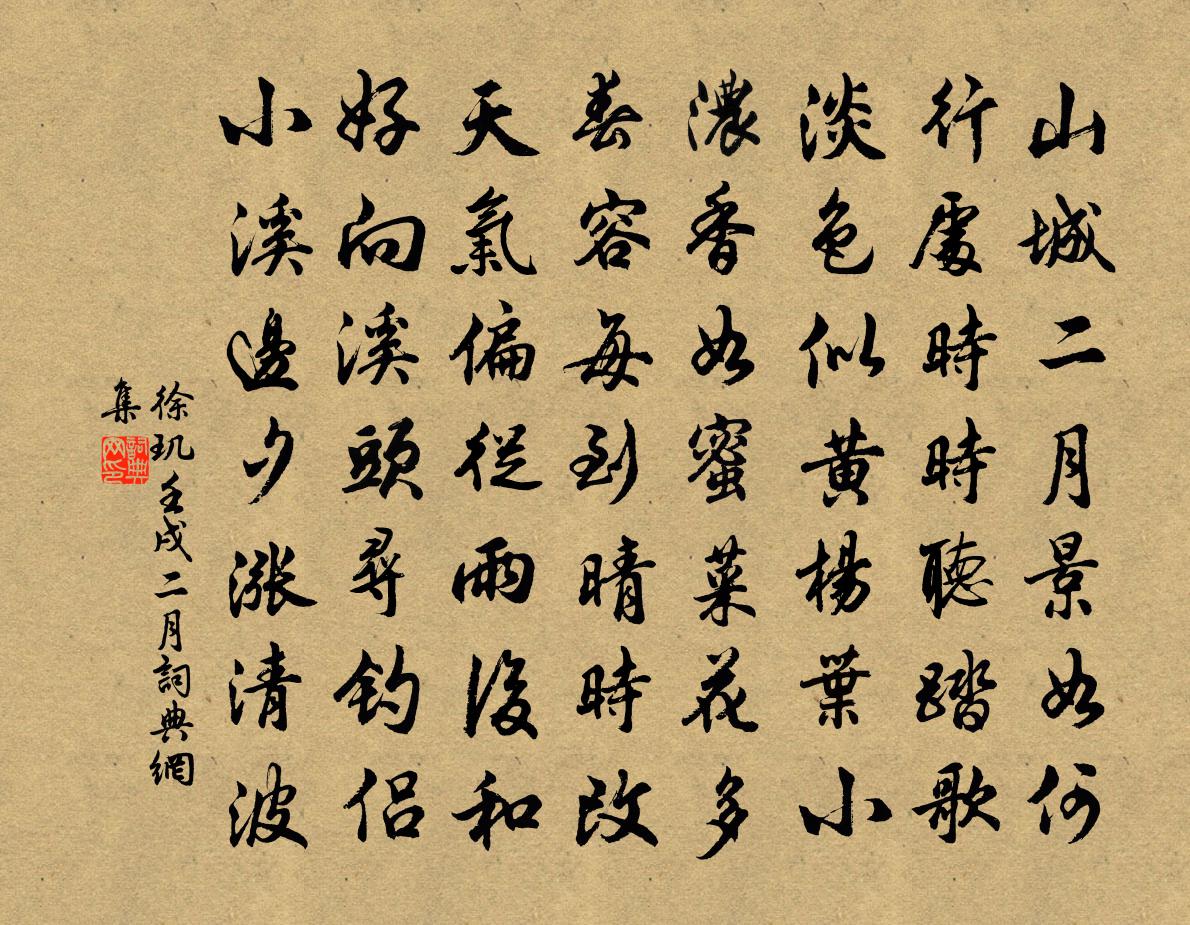 山城二月景如何
行處時時聽踏歌
淡色似黃楊葉小
濃香如蜜菜花多
春容每到晴時改
天氣偏從雨後和
好向溪頭尋釣侶
小溪邊夕漲清波
徐璣壬戌二月詞典網
集
詞典网印